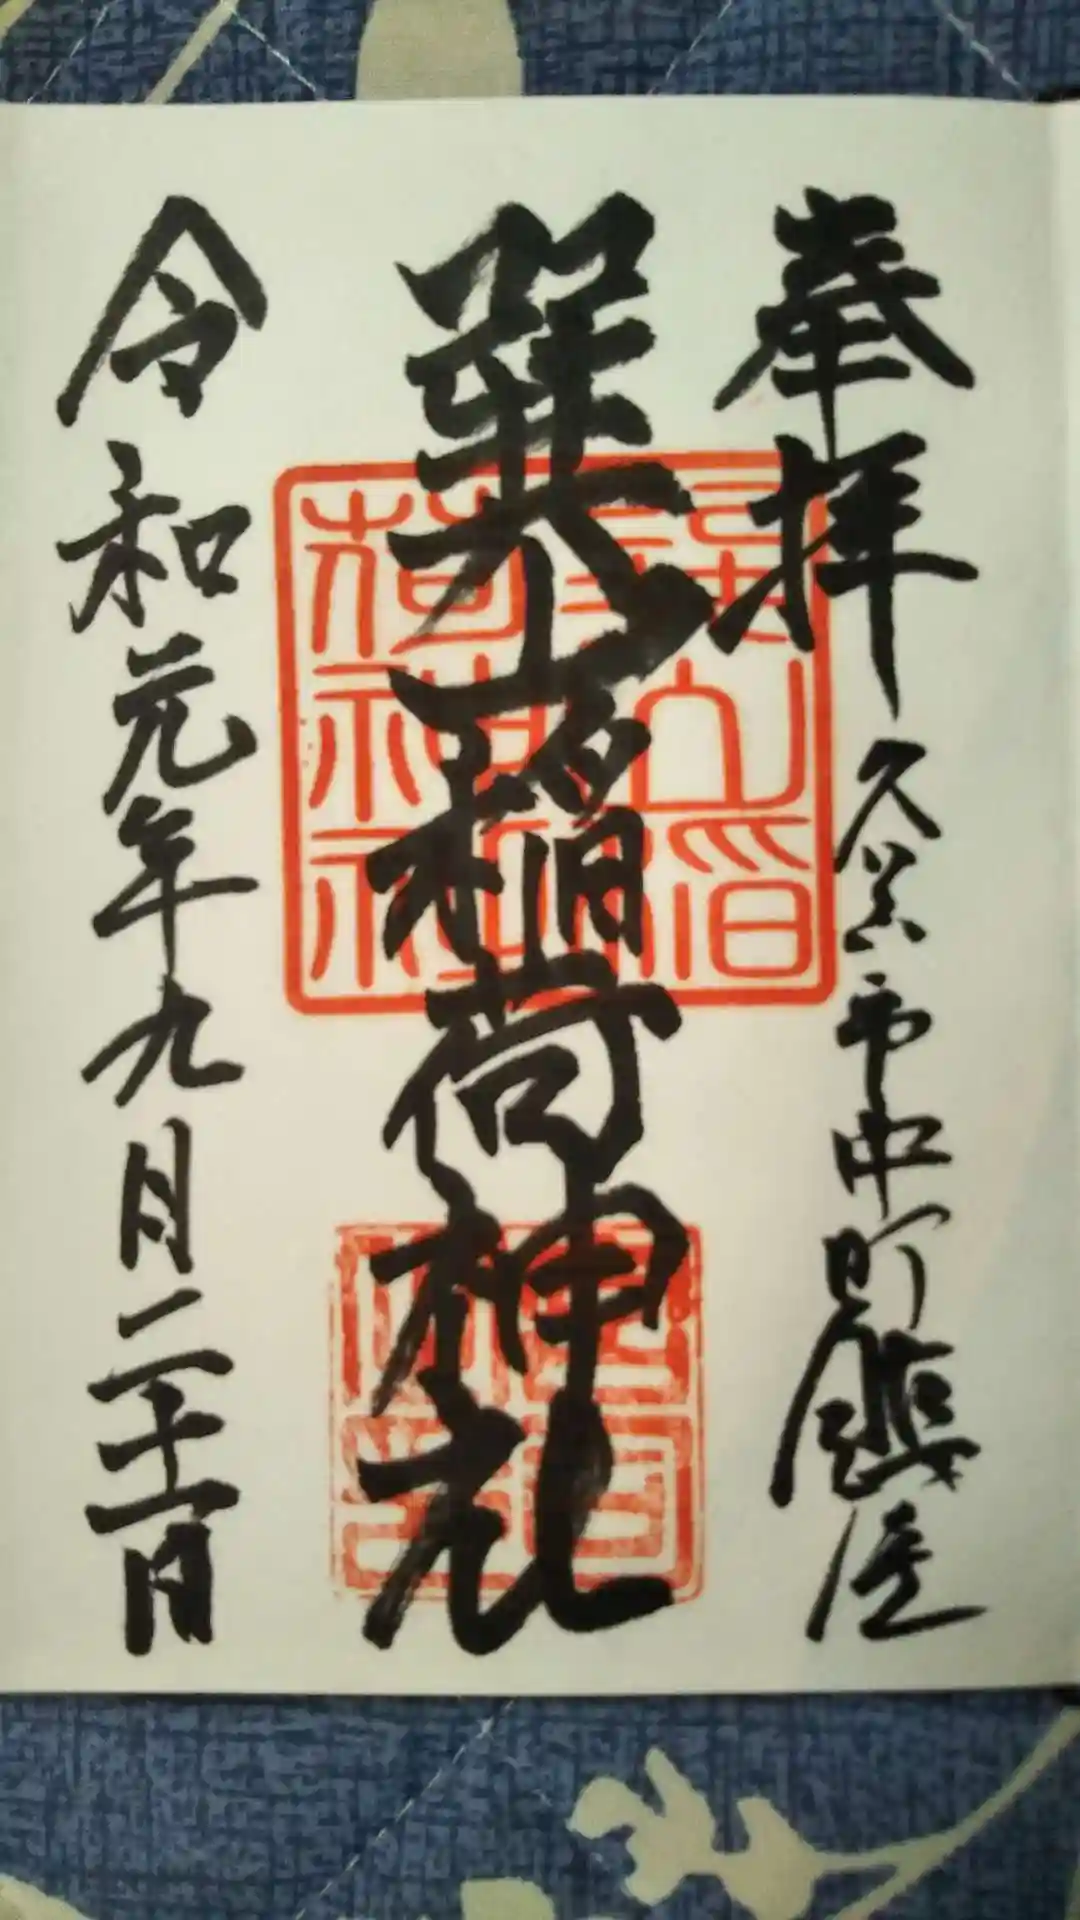 奉拝 久慈市中町鎮座
巽山稲荷神社
令和元年九月二十一日